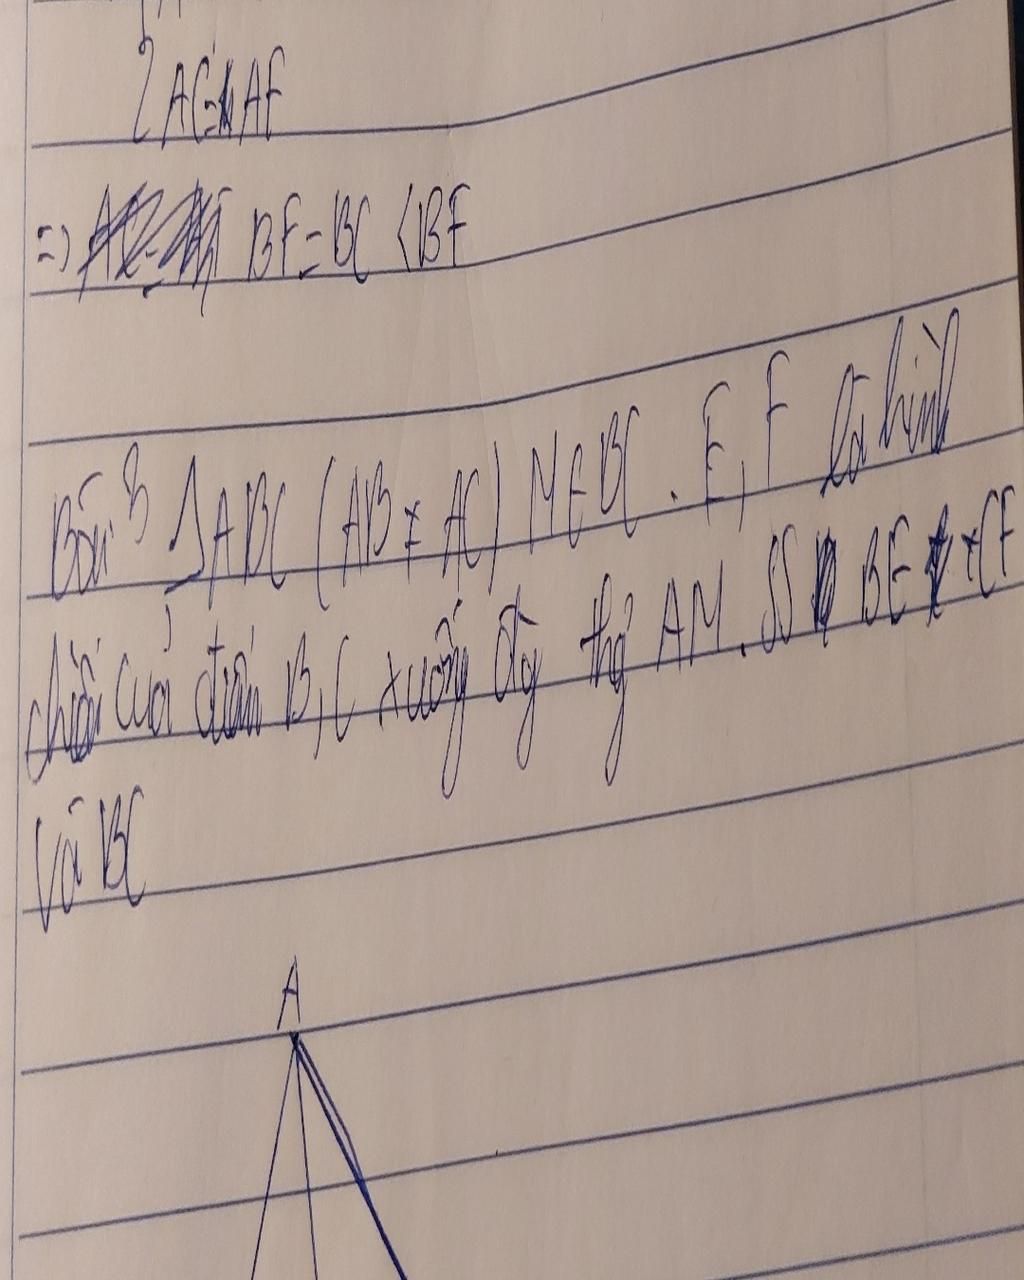 AC = AF
=> BF = BC < BF
Bài 3 ΔABC (AB ≠ AC) M ∈ BC. E, F là hình
chiếu của điểm B, C xuống đg thg AM. SS BE + CF
và BC
A